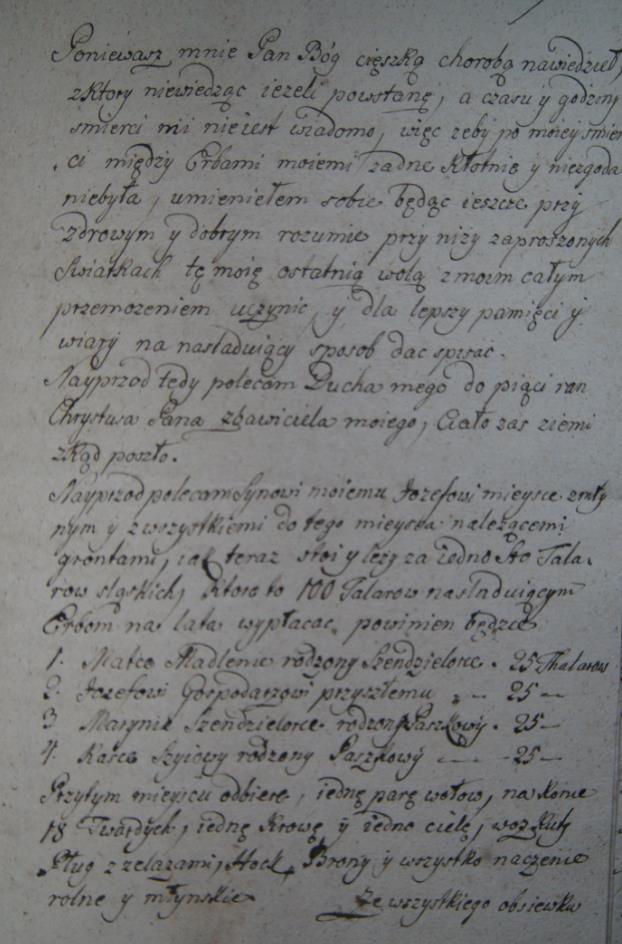 Poniewasz mnie Pan Bóg cięszką chorobą nawiedzuł,
zktory niewiedząc iezeli powstanę, a czasu y godziny
smierci mi nieiest wiadomo, więc zeby po moiey smier
ci między Erbami moiemi zadne Kłotnie y niezgoda
niebyła, umieniełem sobie będąc ieszcze przy
zdrowym y dobrym rozumie przy nizy zaproszonych
Swiatkach tę moię ostatnią wolą z moim całym
przemozeniem uczynic, y dla lepszy pamięci y
wiary na nasladuiący sposob dac spisac.
Nayprzod tedy polecam Ducha mego do pięci ran
Chrystusa Pana zbawiciela moiego, Ciało zas ziemi
zkąd poszło.
Nayprzod polecam Synowi moiemu Jozefowi mieysce zmły
nym y zwszystkiemi do tego mieysca nalezącemi
grontami, iak teraz stoi y lezy za iedno Sto Tala
row sląskich, Ktore to 100 Talarow nasladuiącym
Erbom na lata wypłacac powinien będzie
1. Matce Madlenie rodzony Szendzielorce. 25 Thalarow
2. Jozefowi Gospodarzowi przyszłemu 25
3 Marynie Szendzielorce rodzony Paszkowy. 25
4. Kasce Szyiowy rodzony Paszkowy 25
Przytym mieyscu odbierze, iednę parę wołow, na Konie
18 Twardych, iednę Krowę y iedno cielę, woz Kuty
Pług z zelazami, Hock, Brony y wszystko naczenie
rolne y młynskie Ze wszystkiego obsiewku